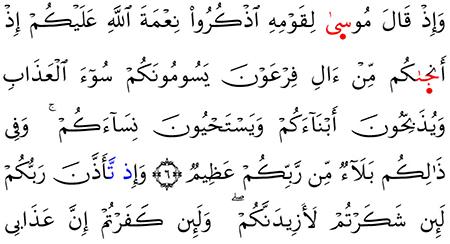 وَإِذْ قَالَ مُوسىٰ لِقَوْمِهِ ٱذْكُرُوا۟ نِعْمَةَ ٱللَّهِ عَلَيْكُمْ إِذْ
أَنجىٰكُم مِّنْ ءَالِ فِرْعَوْنَ يَسُومُونَكُمْ سُوٓءَ ٱلْعَذَابِ
وَيُذَبِّحُونَ أَبْنَآءَكُمْ وَيَسْتَحْيُونَ نِسَآءَكُمْ ۚ وَفِى
ذَٰلِكُم بَلَآءٌ مِّن رَّبِّكُمْ عَظِيمٌ ﴿٦﴾ وَإِذ تَّأَذَّنَ رَبُّكُمْ
لَئِن شَكَرْتُمْ لَأَزِيدَنَّكُمْ ۖ وَلَئِن كَفَرْتُمْ إِنَّ عَذَابِى